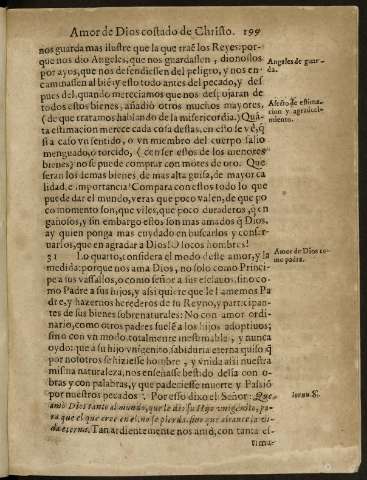 Amor de Dios costado de Christo. 199
nos guarda mas ilustre que la que traē los Reyes: por-
que nos dio Angeles, que nos guardassen, dionoslos
por ayos, que nos defendiessen del peligro, y nos en-
caminassen al biē: y esto todo antes del pecado, y des
pues del, quando mereciamos que nos despojaran de
todos estos bienes, añadiò otros muchos mayores,
(de que tratamos hablando de la misericordia.) Quā-
ta estimacion merece cada cosa destas, en esto se vè, q̄
si a caso vn sentido, o vn miembro del cuerpo salio
menguado, o torcido, (con ser estos de los menores
bienes) no se puede comprar con mōtes de oro. Que
seran los demas bienes, de mas alta guisa, de mayor ca
lidad, e importancia? Compara con estos todo lo que
puede dar el mundo, veras que poco valen, de que po
co momento son, que viles, que poco duraderos, q̄ en
gañosos, y sin embargo estos son mas amados q̄ Dios,
ay quien ponga mas cuydado en buscarlos y conser-
uarlos, que en agradar a Dios? O locos hombres!
31 Lo quarto, considera el modo deste amor, y la
medida: porque nos ama Dios, no solo como Princi-
pe a sus vassallos, o como señor a sus esclauos, sino co-
mo Padre a sus hijos, y assi quiere que le llamemos Pa
dre, y hazernos herederos de su Reyno, y participan-
tes de sus bienes sobrenaturales: No con amor ordi-
nario, como otros padres suelē a los hijos adoptiuos;
sino con vn modo totalmente inestimable, y nunca
oydo: que a su hijo vnigenito, sabiduria eterna quiso q̄
por nosotros se hiziesse hombre, y vnida assi nuestra
misma naturaleza, nos enseñasse bestido dessa con o-
bras y con palabras, y que padeciesse muerte y Passiō
por nuestros pecados. Por esso dixo el Señor: Que
amò Dios tanto al mundo, que le dio su Hijo vnigenito, pa-
ra que el que cree en el, no se pierda, sino que alcance la vi-
da eterna. Tan ardientemente nos amò, con tanta es-
tima-
Angeles de guar-
da.
Afecto de estima-
cion y agradeci-
miento.
Amor de Dios co-
mo padre.